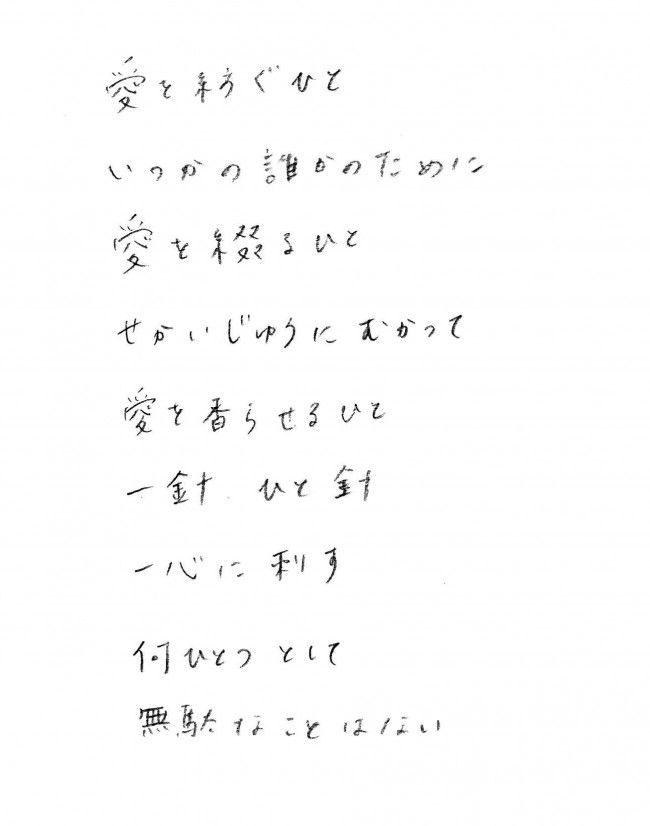 愛を紡ぐひと
いつかの誰かのために
愛を綴るひと
せかいじゅうに むかって
愛を香らせるひと
一針 ひと針
一心に刺す
何ひとつ として
無駄なことはない